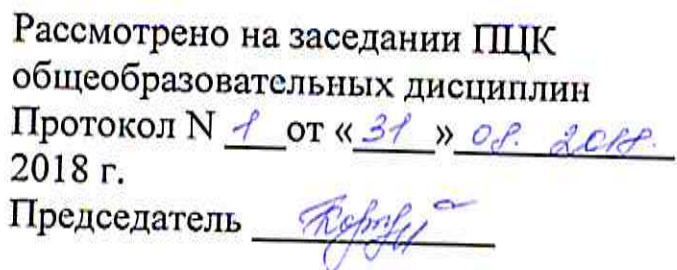 Рассмотрено на заседании ПЦК
общеобразовательных дисциплин
Протокол N 1 от «31» 08. 2018.
2018 г.
Председатель